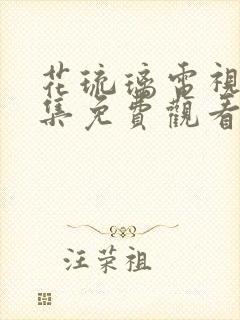 花琉璃電視
集免費觀看
汪荣祖